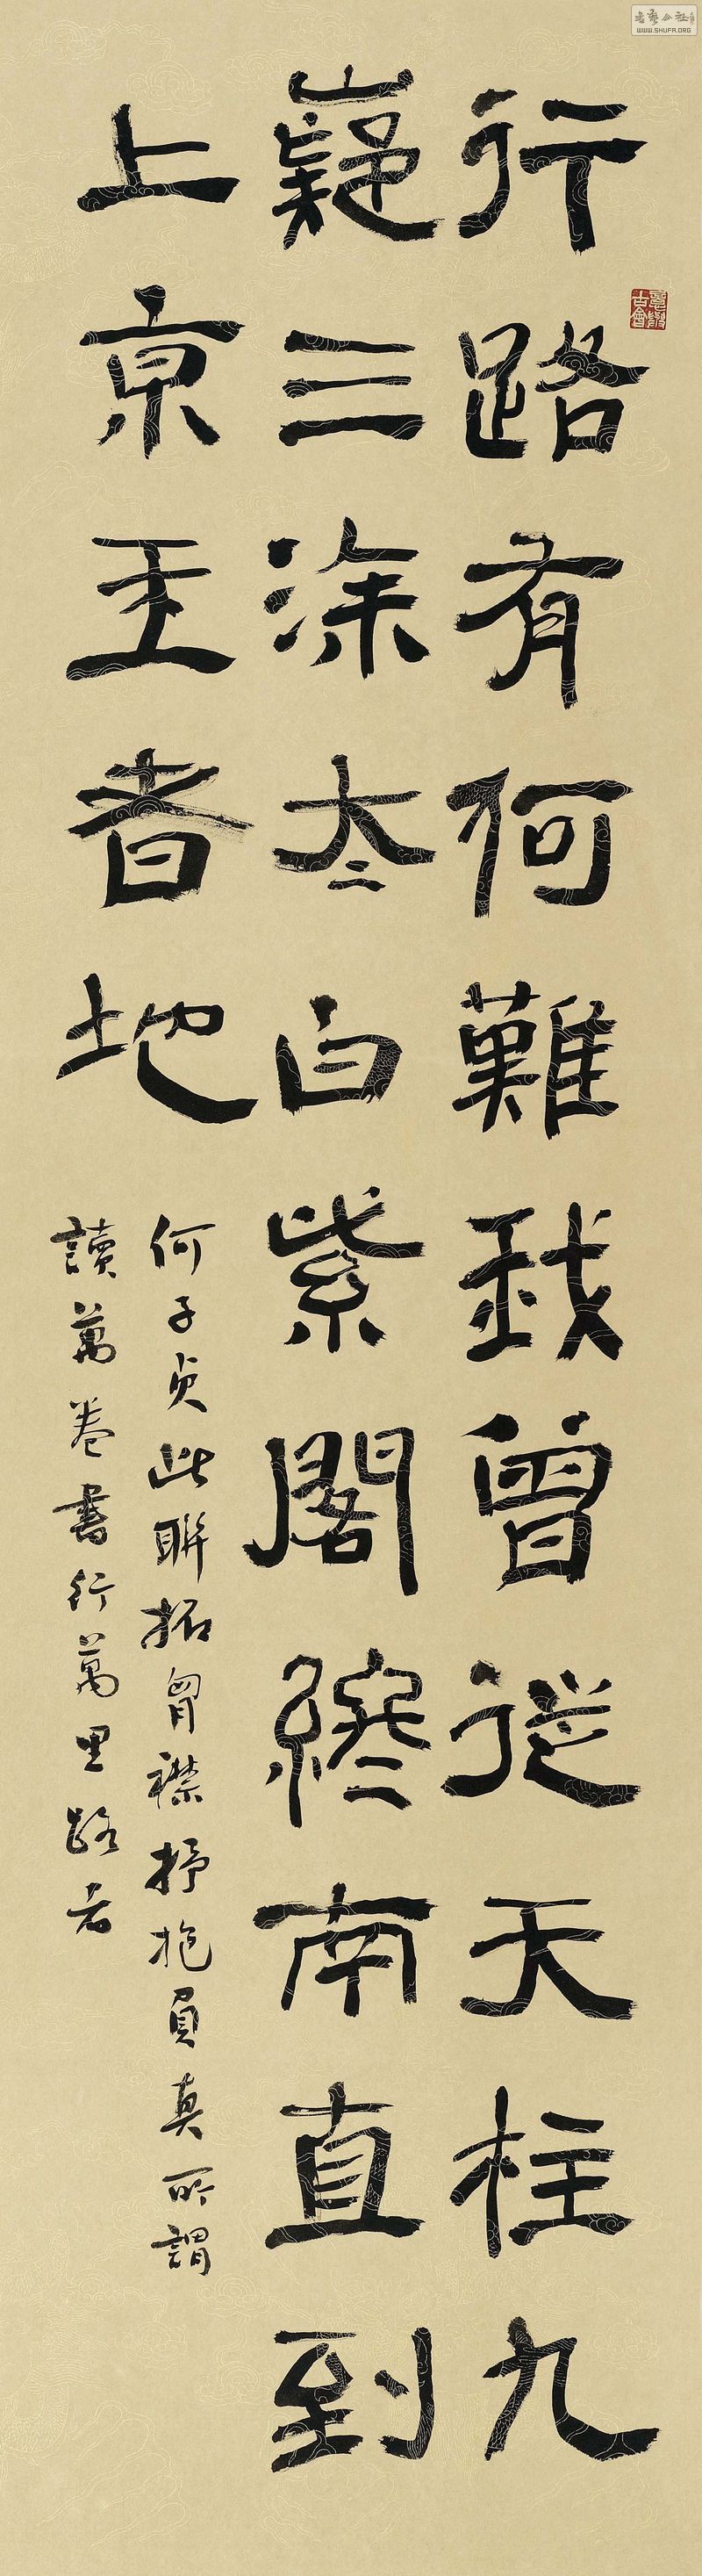 行路有何難我曾從天柱九
嶷三涂太白紫閣終南直到
上京王者地
何子貞此聯拓胷襟抒抱負真所謂
讀萬卷書行萬里路者
意與古會
書藝公社
WWW.SHUFA.ORG